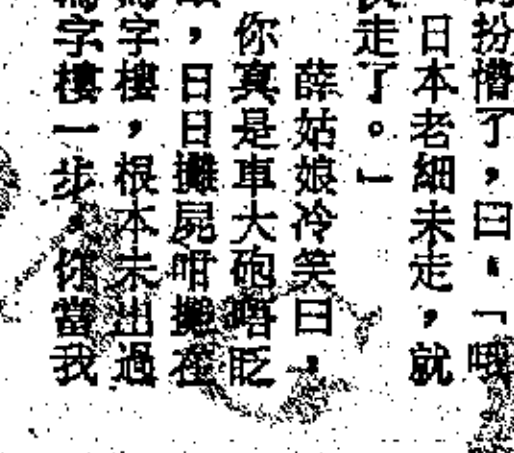 扮懵了，曰：「哦
日本老細未走，就
走了。」
薛姑娘冷笑曰：
你真是車大砲唔眨
，日日攤屍咁攤在
字樓，根本未出過
字樓一步，你當我